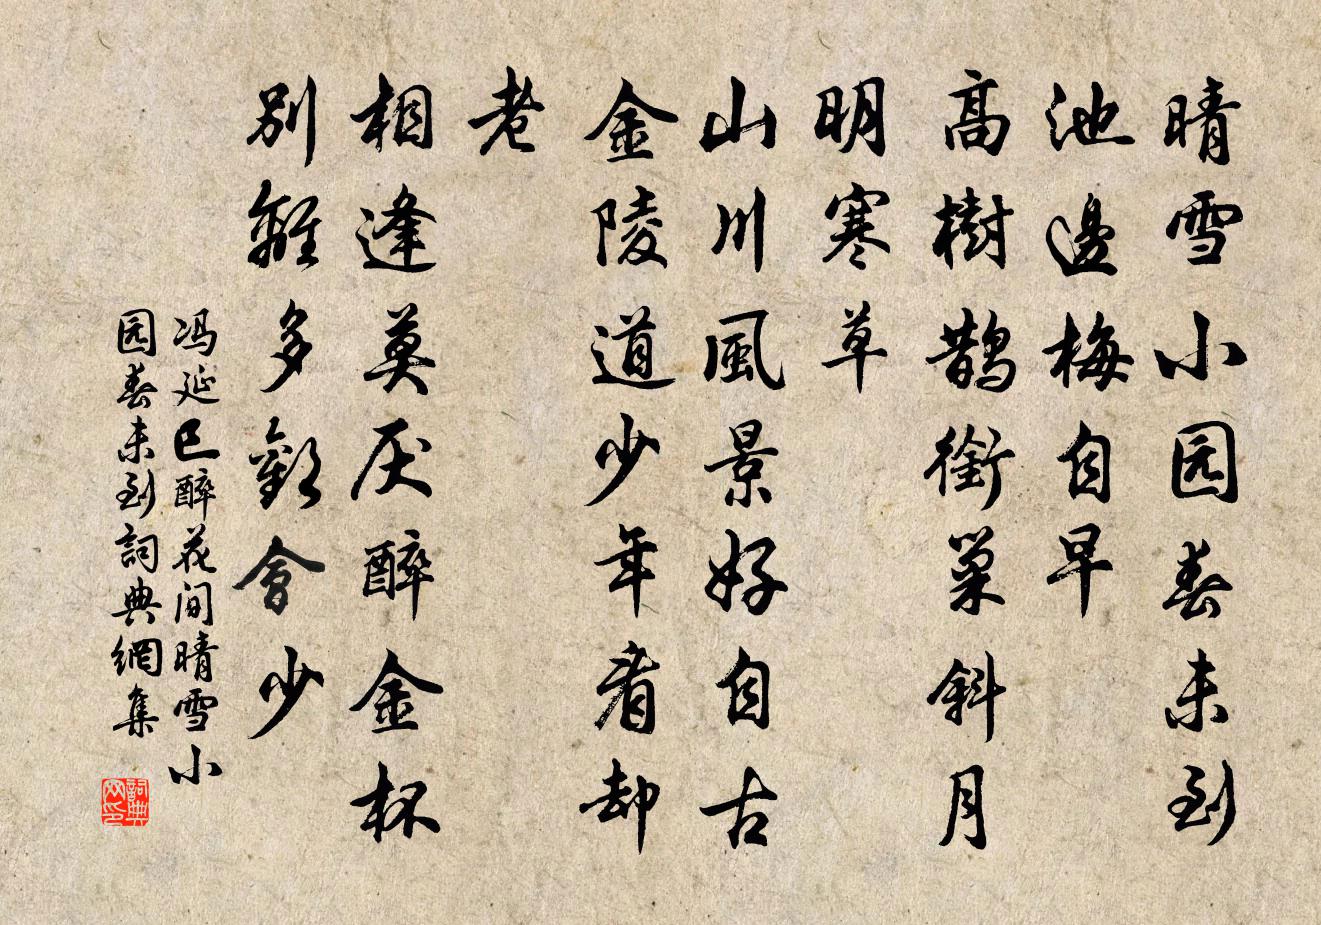 晴雪小园春未到
池邊梅自早
高樹鵲銜巢斜月
明寒草
山川風景好自古
金陵道少年看却
老
相逢莫厌醉金杯
別離多歡會少
冯延巳醉花间晴雪小
园春未到詞典網集
詞典
网印